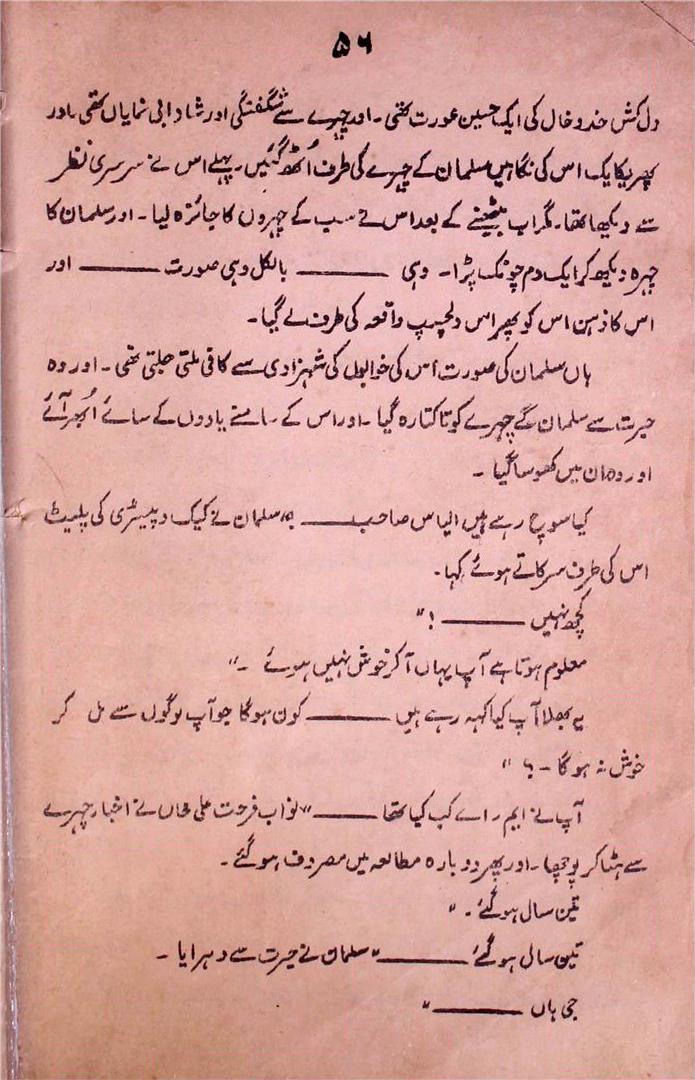 ۵۶
دل کش خدوخال کی ایک حسین عورت تھی۔ اور چہرے سے شگفتگی اور شادابی نمایاں تھی۔ اور
پھر یکایک اس کی نگاہیں سلمان کے چہرے کی طرف اُٹھ گئیں۔ پہلے اس نے سرسری نظر
سے دیکھا تھا۔ مگر اب بیٹھنے کے بعد اس نے سب کے چہروں کا جائزہ لیا۔ اور سلمان کا
چہرہ دیکھ کر ایک دم چونک پڑا۔ وہی ——— بالکل وہی صورت ——— اور
اس کا ذہن اس کو پھر اس دلچسپ واقعہ کی طرف لے گیا۔
ہاں سلمان کی صورت اس کی خوابوں کی شہزادی سے کافی ملتی جلتی تھی۔ اور وہ
حیرت سے سلمان کے چہرے کو تاکتا رہ گیا۔ اور اس کے سامنے یادوں کے سائے اُبھر آئے
اور وہ ان میں کھو سا گیا۔
کیا سوچ رہے ہیں الیاس صاحب ——— ؟" سلمان نے کیک و پیسٹری کی پلیٹ
اس کی طرف سرکاتے ہوئے کہا۔
کچھ نہیں ——— !"
معلوم ہوتا ہے آپ یہاں آ کر خوش نہیں ہوئے۔"
یہ بھلا آپ کیا کہہ رہے ہیں ——— کون ہوگا جو آپ لوگوں سے مل کر
خوش نہ ہوگا۔ ؟"
آپ نے ایم۔ اے کب کیا تھا ——— " نواب فرحت علی خاں نے اخبار چہرے
سے ہٹا کر پوچھا۔ اور پھر دوبارہ مطالعہ میں مصروف ہوگئے۔
تین سال ہوگئے۔"
تین سال ہوگئے ——— " سلمان نے حیرت سے دہرایا۔
جی ہاں ——— "